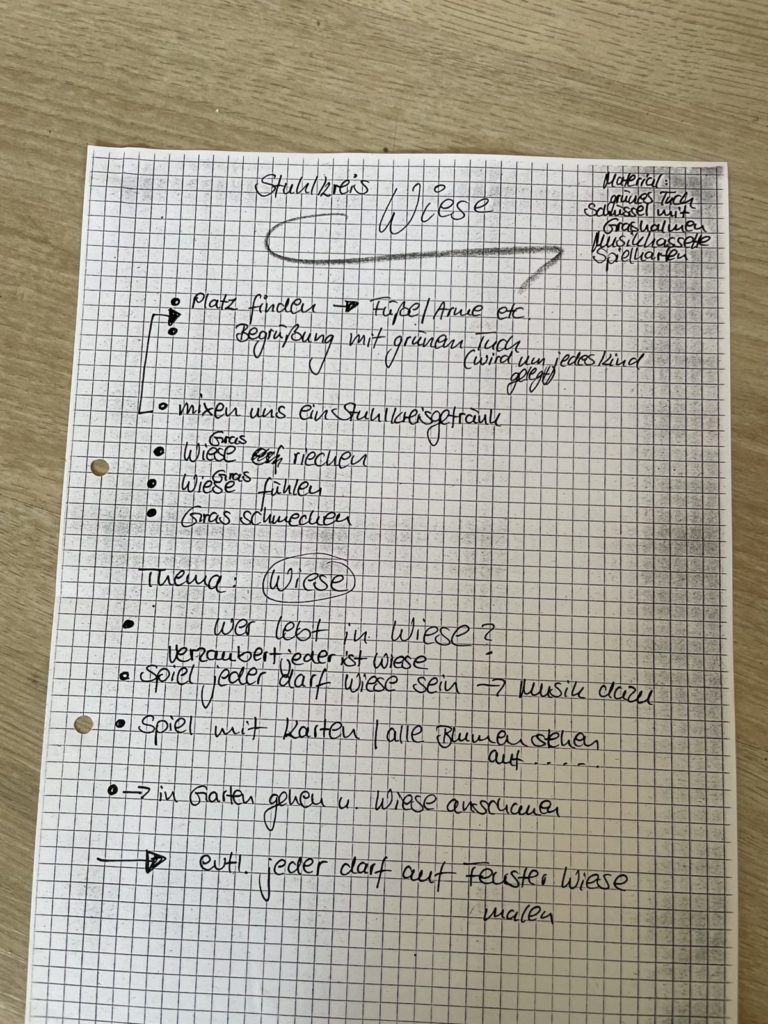 Stuhlkreis Wiese
Material:
grünes Tuch
Schüssel mit
Grashalmen
Musikkassette
Spielkarten
• Platz finden → Füße/Arme etc.
• Begrüßung mit grünem Tuch
(wird um jedes Kind
gelegt)
• mixen uns ein Stuhlkreisgetränk
Gras
• Wiese riechen
Gras
• Wiese fühlen
• Gras schmecken
Thema: Wiese
• wer lebt in Wiese?
verzaubert jeder ist Wiese
• Spiel jeder darf Wiese sein → Musik dazu
• Spiel mit Karten / alle Blumen stehen
auf .....
• → in Garten gehen u. Wiese anschauen
→ evtl. jeder darf auf Fenster Wiese
malen